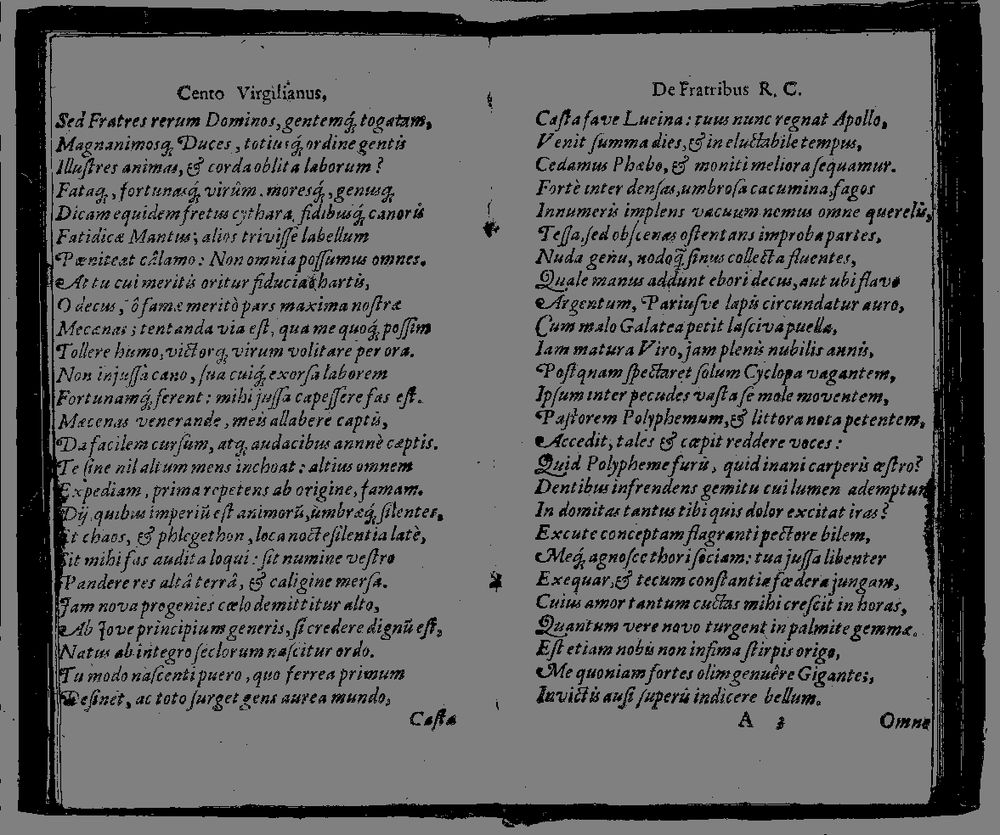 Cento Virgilianus,
Sed Fratres rerum Dominos, gentemq́; togatam,
Magnanimosq; Duces, totiusq́; ordine gentis
Illuſtres animas, & corda oblita laborum?
Fataq;, fortunasq́; virûm, moresq́;, genusq́;
Dicam equidem fretus cythara, fidibusq́; canoris
Fatidicæ Mantus; alios triviſſe labellum
Pæniteat câlamo: Non omnia poſſumus omnes.
At tu cui meritis oritur fiducia chartis,
O decus, ô famæ meritò pars maxima noſtræ
Mecænas; tentanda via eſt, qua me quoq́; poſſim
Tollere humo, victorq́; virum volitare per ora.
Non injuſſa cano, ſua cuiq́; exorſa laborem
Fortunamq́; ferent: mihi juſſa capeſſere fas eſt.
Mæcenas venerande, meis allabere captis,
Da facilem curſum, atq; audacibus annnè cæptis.
Te ſine nil altum mens inchoat: altius omnem
Expediam, prima repetens ab origine, famam.
Dij, quibus imperiũ eſt animorũ, umbræq́; ſilentes,
Sit chaos, & phlegethon, loca nocte ſilentia latè,
Sit mihi fas audita loqui: ſit numine veſtro
Pandere res altâ terrâ, & caligine merſa.
Jam nova progenies cœlo demittitur alto,
Ab Jove principium generis, ſi credere dignũ eſt,
Natus ab integro ſeclorum naſcitur ordo.
Tu modo naſcenti puero, quo ferrea primum
Deſinet, ac toto ſurget gens aurea mundo,
Caſta
De Fratribus R. C.
Caſta fave Lucina: tuus nunc regnat Apollo,
Venit ſumma dies, & ineluctabile tempus,
Cedamus Phæbo, & moniti meliora ſequamur.
Fortè inter denſas, umbroſa cacumina, fagos
Innumeris implens vacuum nemus omne querelũ,
Teſſa, ſed obſcenas oſtentans improba partes,
Nuda genu, nodoq́; ſinus collecta fluentes,
Quale manus addunt ebori decus, aut ubi flavo
Argentum, Pariuſve lapis circundatur auro,
Cum malo Galatea petit laſciva puella,
Iam matura Viro, jam plenis nubilis annis,
Poſtquam ſpectaret ſolum Cyclopa vagantem,
Ipſum inter pecudes vaſta ſe mole moventem,
Paſtorem Polyphemum, & littora nota petentem,
Accedit, tales & cœpit reddere voces:
Quid Polypheme furis, quid inani carperis æſtro?
Dentibus infrendens gemitu cui lumen ademptum
In domitas tantus tibi quis dolor excitat iras?
Excute conceptam flagranti pectore bilem,
Meq́; agnoſce thori ſociam: tua juſſa libenter
Exequar, & tecum conſtantia fædera jungam,
Cuius amor tantum cuctas mihi creſcit in horas,
Quantum vere novo turgent in palmite gemmæ.
Eſt etiam nobis non infima ſtirpis origo,
Me quoniam fortes olim genuêre Gigantes,
Invictis auſi ſuperũ indicere bellum.
A 3 Omne